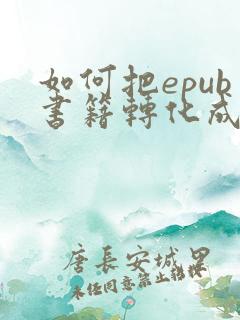 如何把epub
書籍轉化成
唐長安城里
未经同意禁止转载